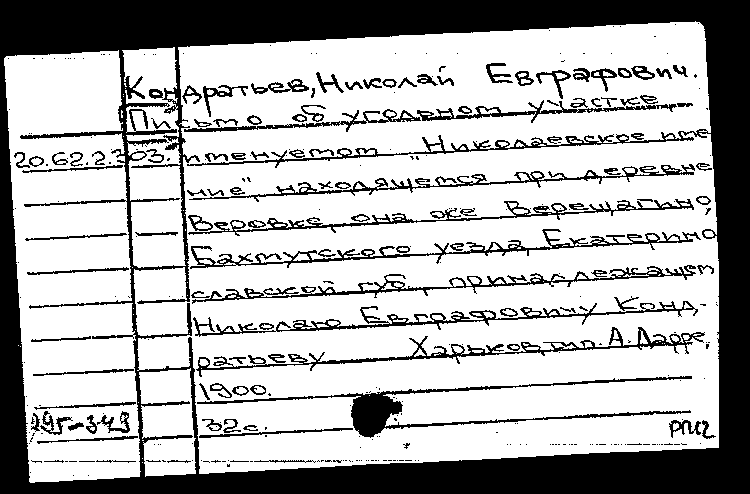 Кондратьев, Николай Евграфович.
Письмо об угольном участке,
20.62.2.303. именуемом "Николаевское име
ние", находящемся при деревне
Веровке, она же Верещагино,
Бахмутского уезда, Екатерино
славской губ., принадлежащем
Николаю Евграфовичу Конд-
ратьеву Харьков, тип. А. Дарре,
1900.
295-349 32с.
РМ2